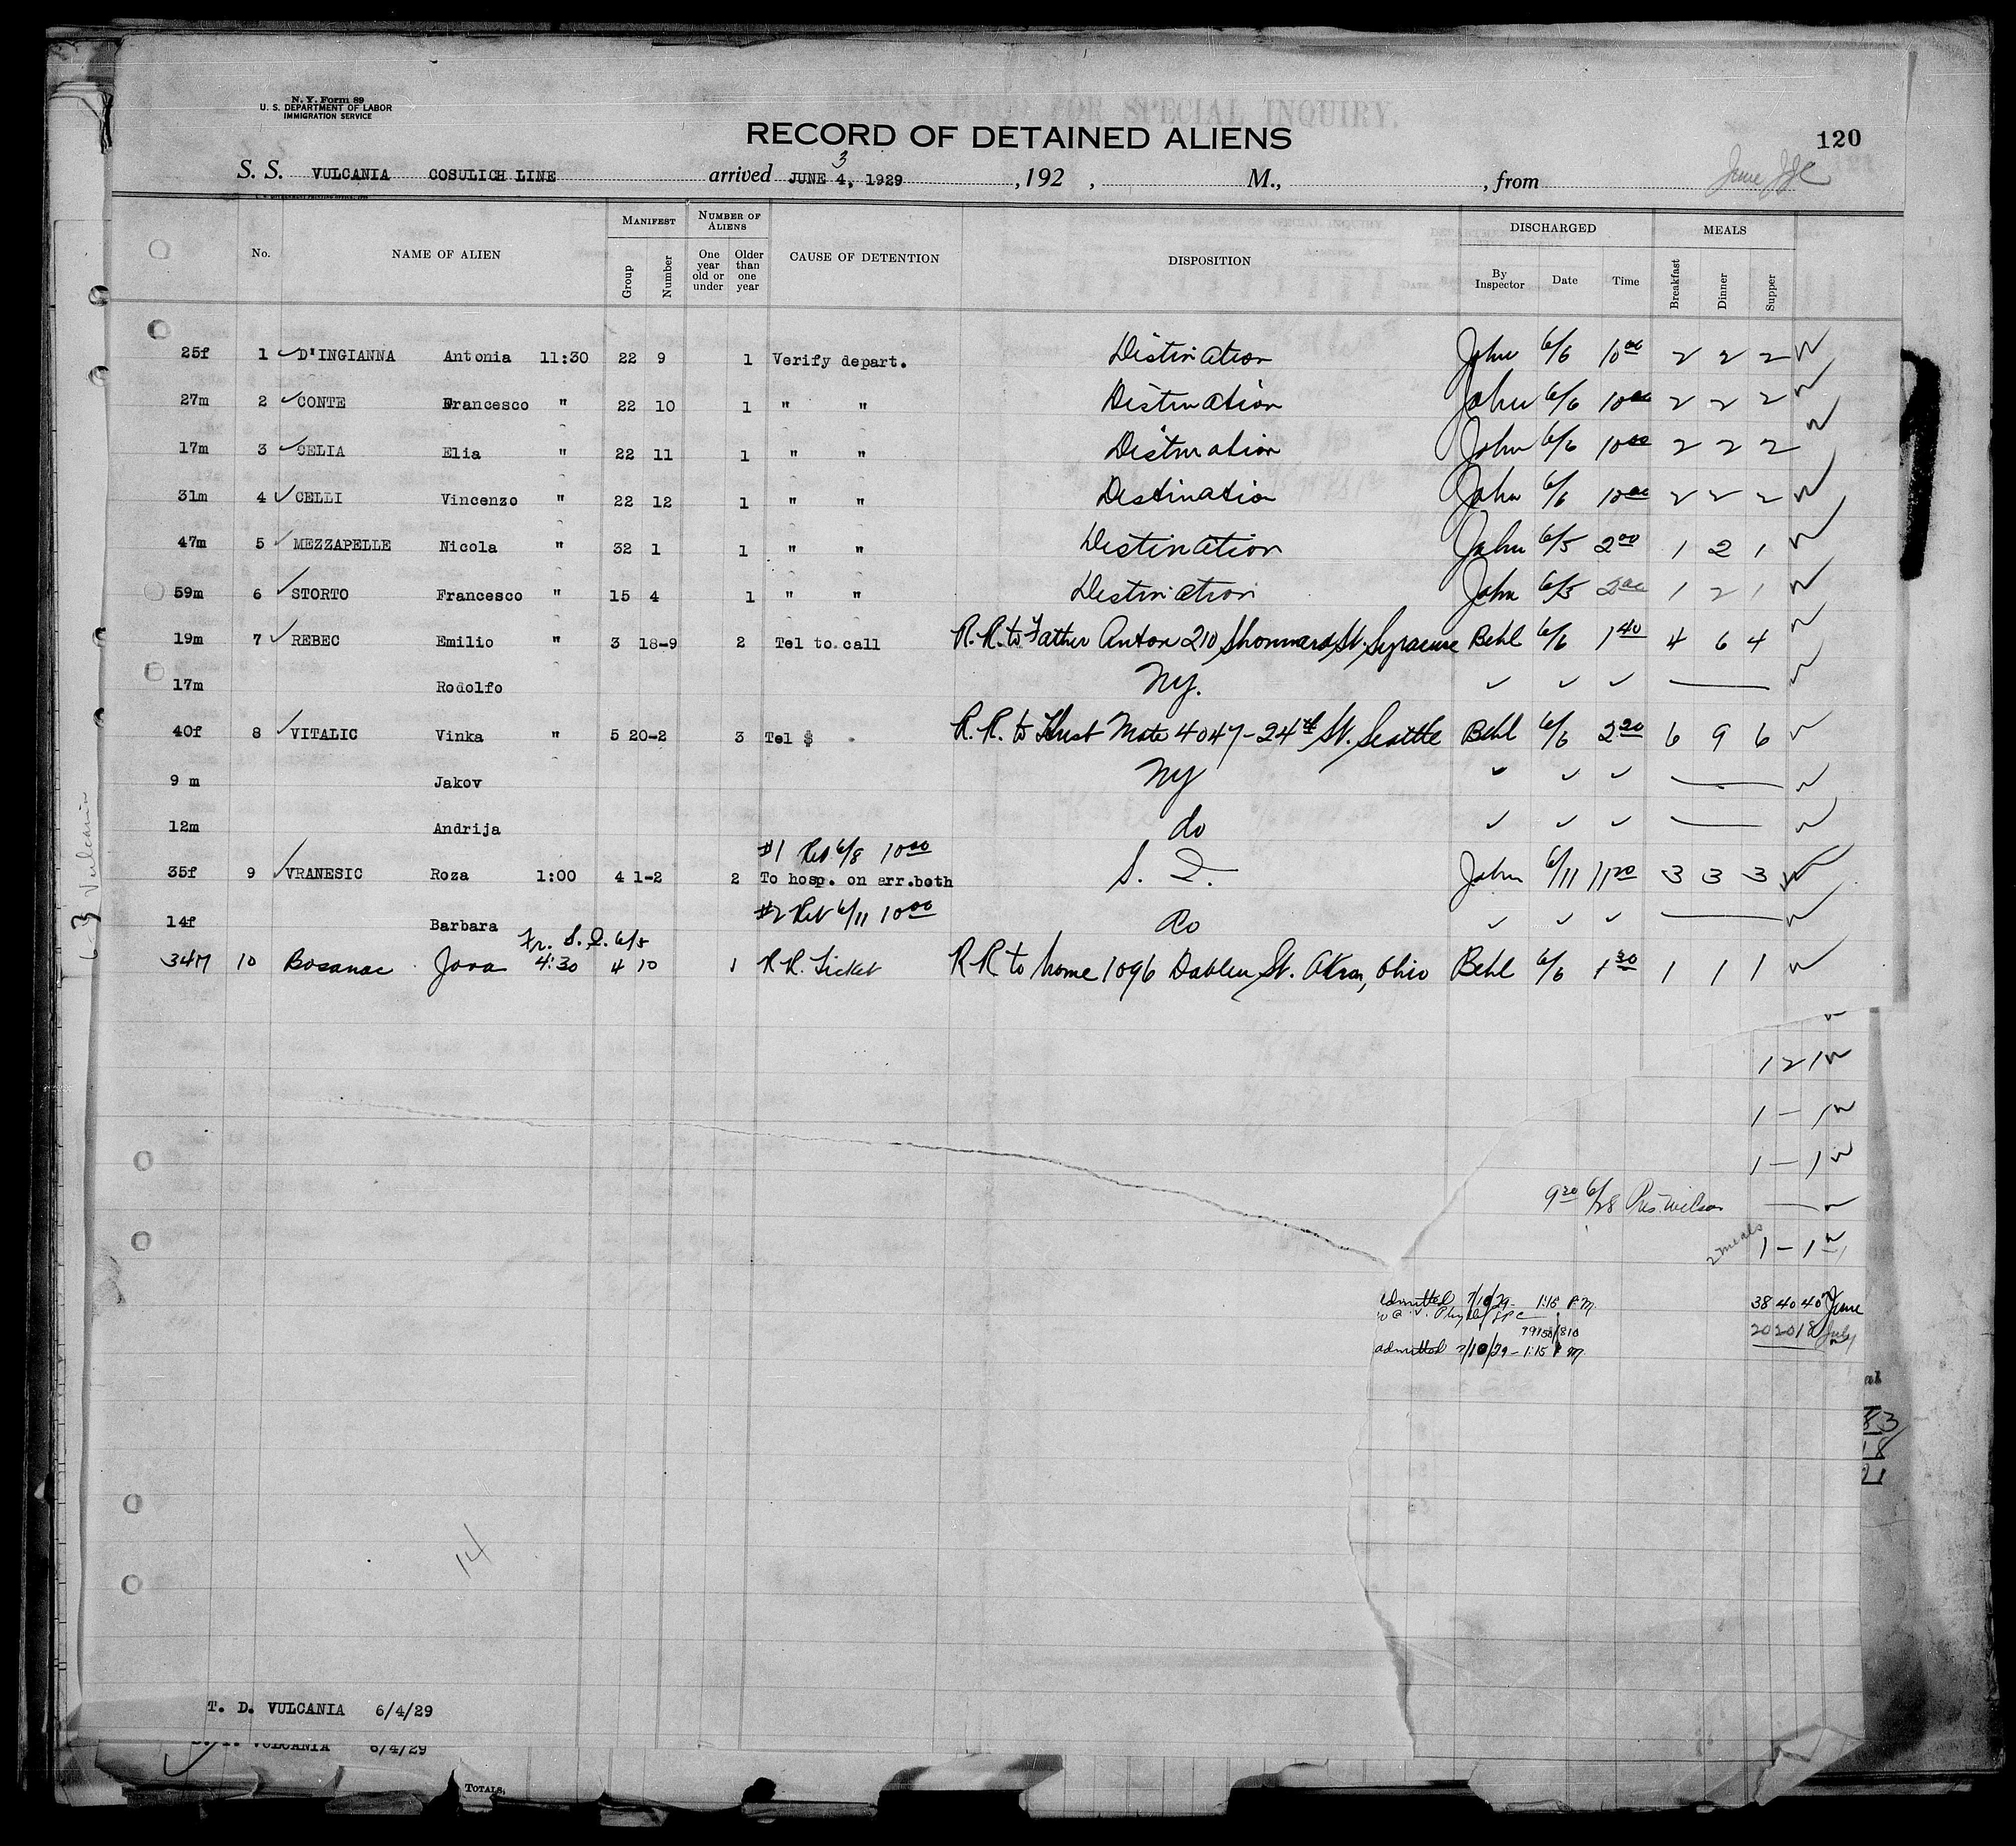 N. Y. Form 89
U. S. DEPARTMENT OF LABOR
IMMIGRATION SERVICE
FOR SPECIAL INQUIRY.
RECORD OF DETAINED ALIENS
120
3
S. S. VULCANIA COSULICH LINE arrived JUNE 4, 1929, 192 , M., , from June
No. NAME OF ALIEN MANIFEST NUMBER OF ALIENS CAUSE OF DETENTION DISPOSITION DISCHARGED MEALS
Group Number One year old or under Older than one year By Inspector Date Time Breakfast Dinner Supper
25f 1 ✓ D'INGIANNA Antonia 11:30 22 9 1 Verify depart. Destination John 6/6 10 00 2 2 2
27m 2 ✓ CONTE Francesco " 22 10 1 " " Destination John 6/6 10 00 2 2 2
17m 3 ✓ CELIA Elia " 22 11 1 " " Destination John 6/6 10 00 2 2 2
31m 4 ✓ CELLI Vincenzo " 22 12 1 " " Destination John 6/6 10 00 2 2 2
47m 5 ✓ MEZZAPELLE Nicola " 32 1 1 " " Destination John 6/5 2 00 1 2 1
59m 6 ✓ STORTO Francesco " 15 4 1 " " Destination John 6/5 2 00 1 2 1
19m 7 ✓ REBEC Emilio " 3 18-9 2 Tel to call R.R. to Father Anton 210 St. Syracuse Behl 6/6 1 40 4 6 4
17m Rodolfo NY. ✓ ✓ ✓
40f 8 ✓ VITALIC Vinka " 5 20-2 3 Tel $ R.R. to Husb Mate 4047-24th St. Seattle Behl 6/6 2 20 6 9 6
9 m Jakov NY ✓ ✓ ✓
12m Andrija do ✓ ✓ ✓
#1 Rel 6/8 10 00
35f 9 ✓ VRANESIC Roza 1:00 4 1-2 2 To hosp. on arr.both S. I. John 6/11 11 20 3 3 3
#2 Rel 6/11 10 00
14f Barbara do ✓ ✓ ✓
Fr. S. I. 6/5
34M 10 Bosanac Jova 4:30 4 10 1 R R. Ticket R R to home 1096 St. Akron, Ohio Behl 6/6 1 30 1 1 1
1 2 1
1 - 1
1 - 1
9 20 6/28 Pres. Wilson
2 meals 1 - 1
admitted 7/10/29 - 1:15 P.M. 38 40 40 June
99158/810 20 20 18 July
admitted 7/10/29 - 1:15 P M.
83
18
21
6-3 Vulcania
14
T. D. VULCANIA 6/4/29
VULCANIA 6/4/29
TOTALS,